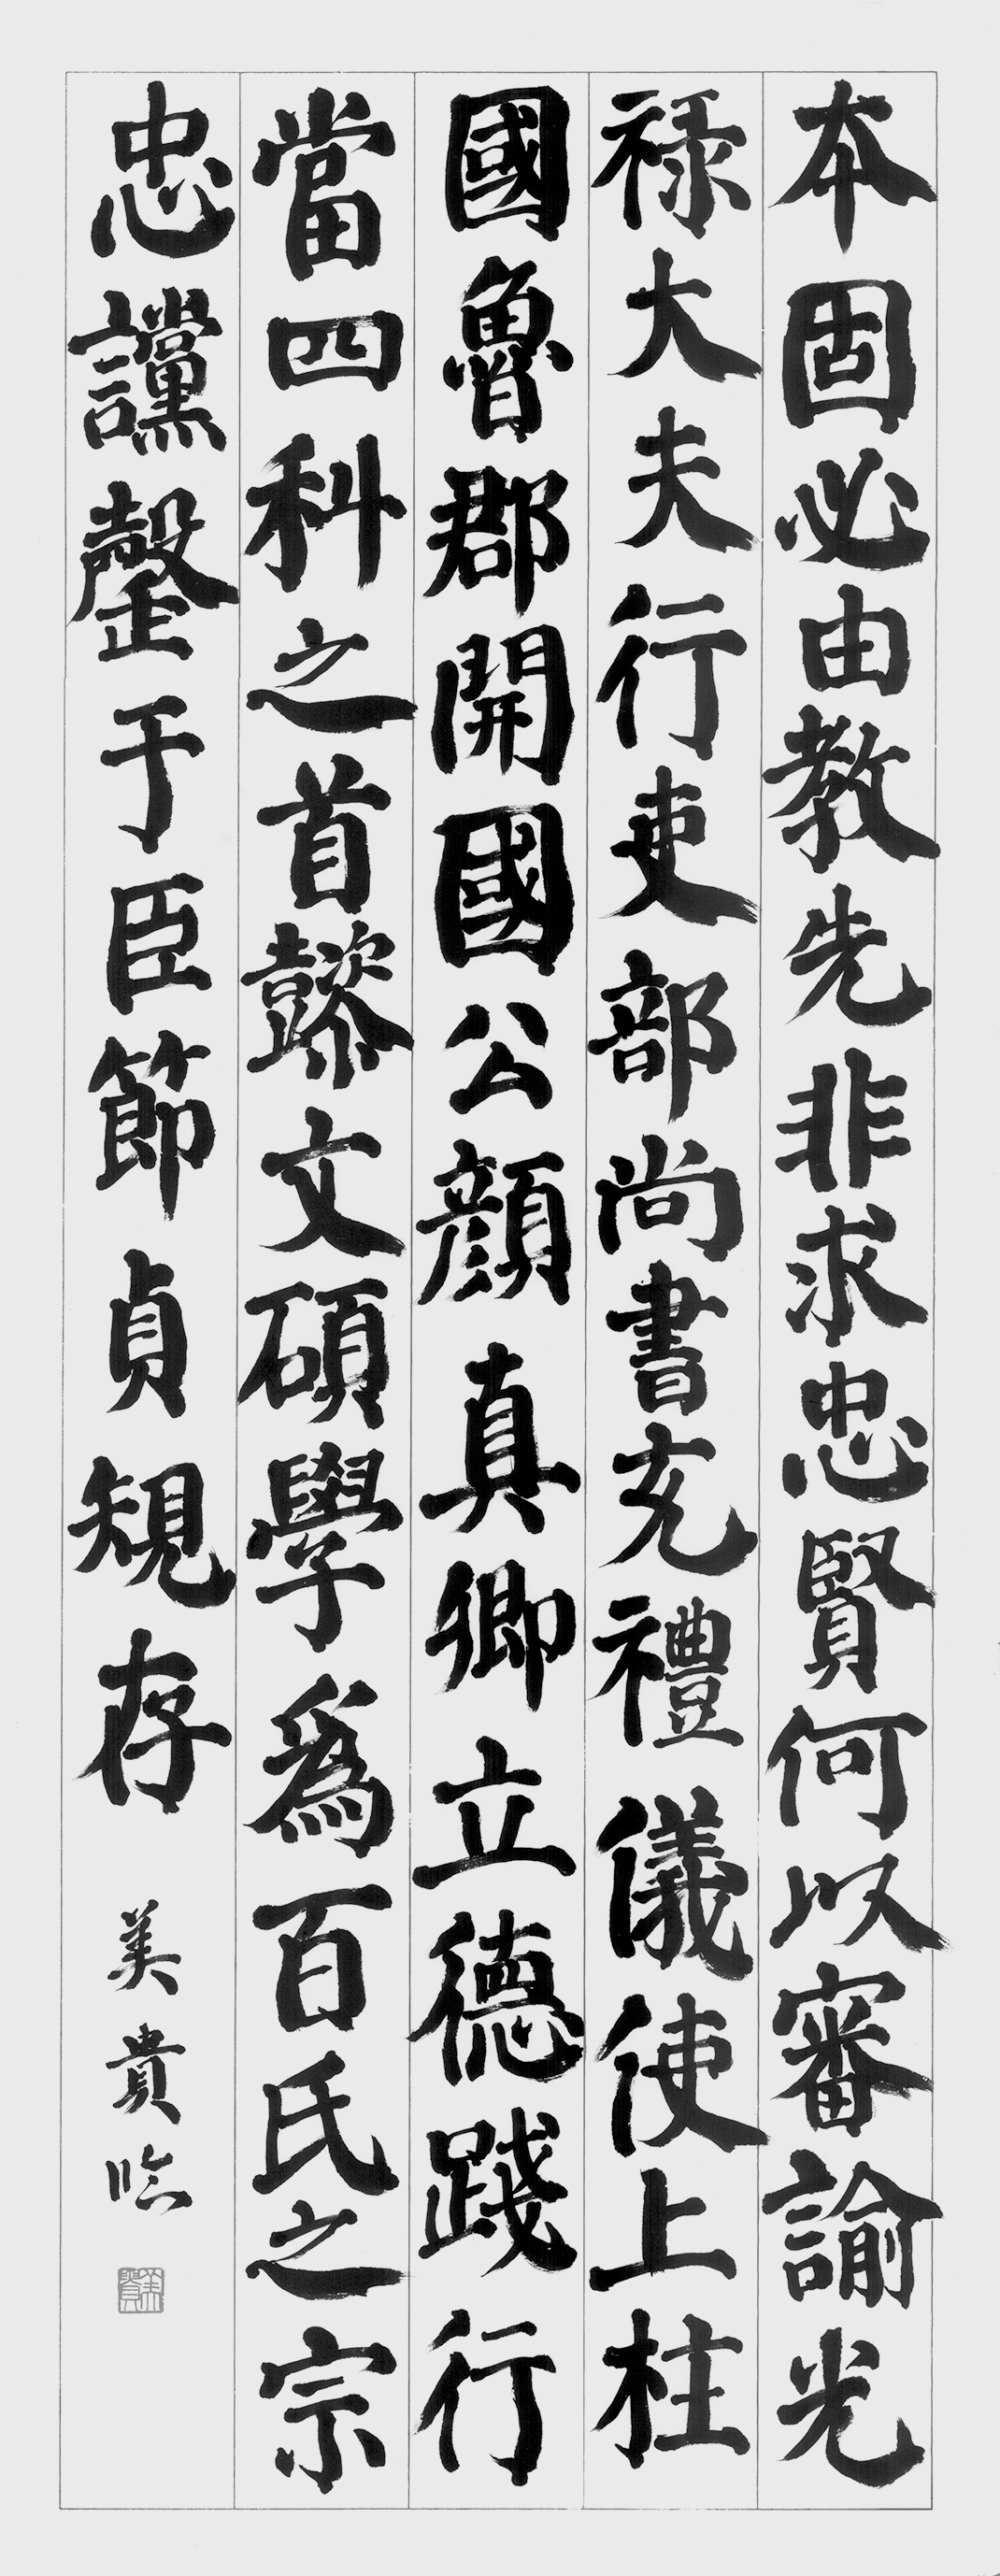 本固必由教先非求忠賢何以審諭光
禄大夫行吏部尚書充禮儀使上柱
國魯郡開國公顔真卿立德踐行
當四科之首懿文碩學為百氏之宗
忠讜罄于臣節貞規存
美貴臨